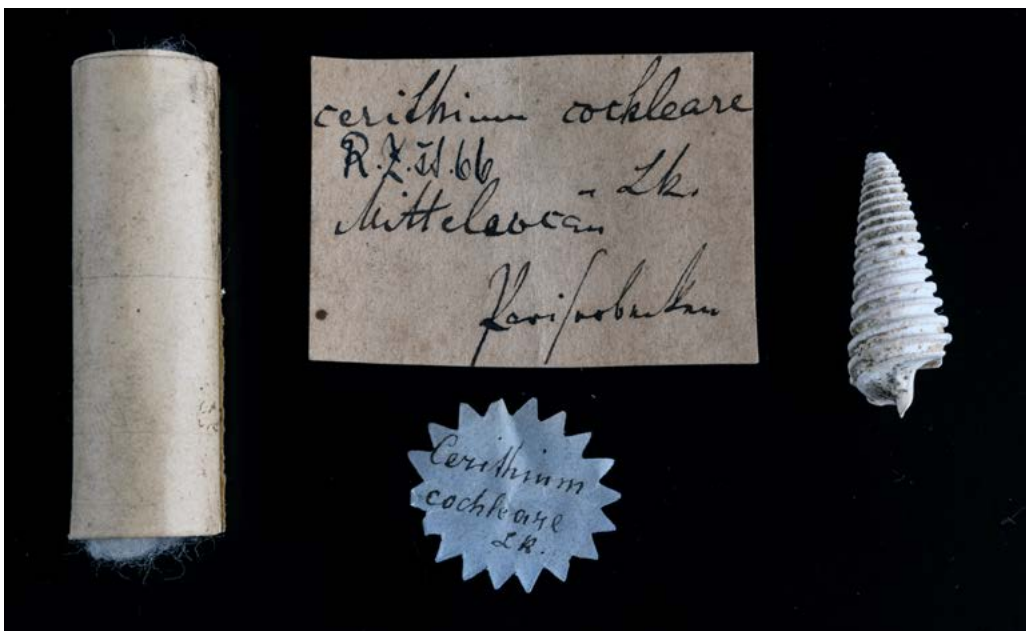 cerithium cochleare
R.Z. II. 66
- Lk.
Mitteleocän
Pariserbecken
Cerithium
cochleare
Lk.